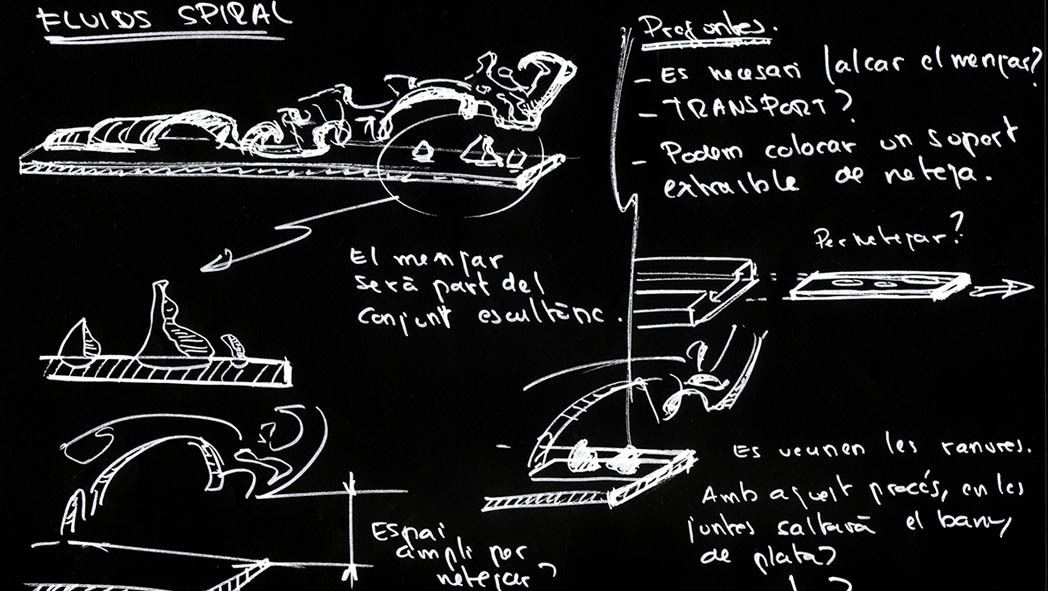 FLUIDS SPIRAL
Preguntes.
- Es necesari falcar el menjar?
- TRANSPORT?
- Podem colocar un suport
extraible de neteja.
Per netejar?
El menjar
serà part del
conjunt escultòric.
Es veunen les ranures.
Amb aquest procés, en les
juntes saltarà el bany
de plata?
Espai
ampli per
netejar?